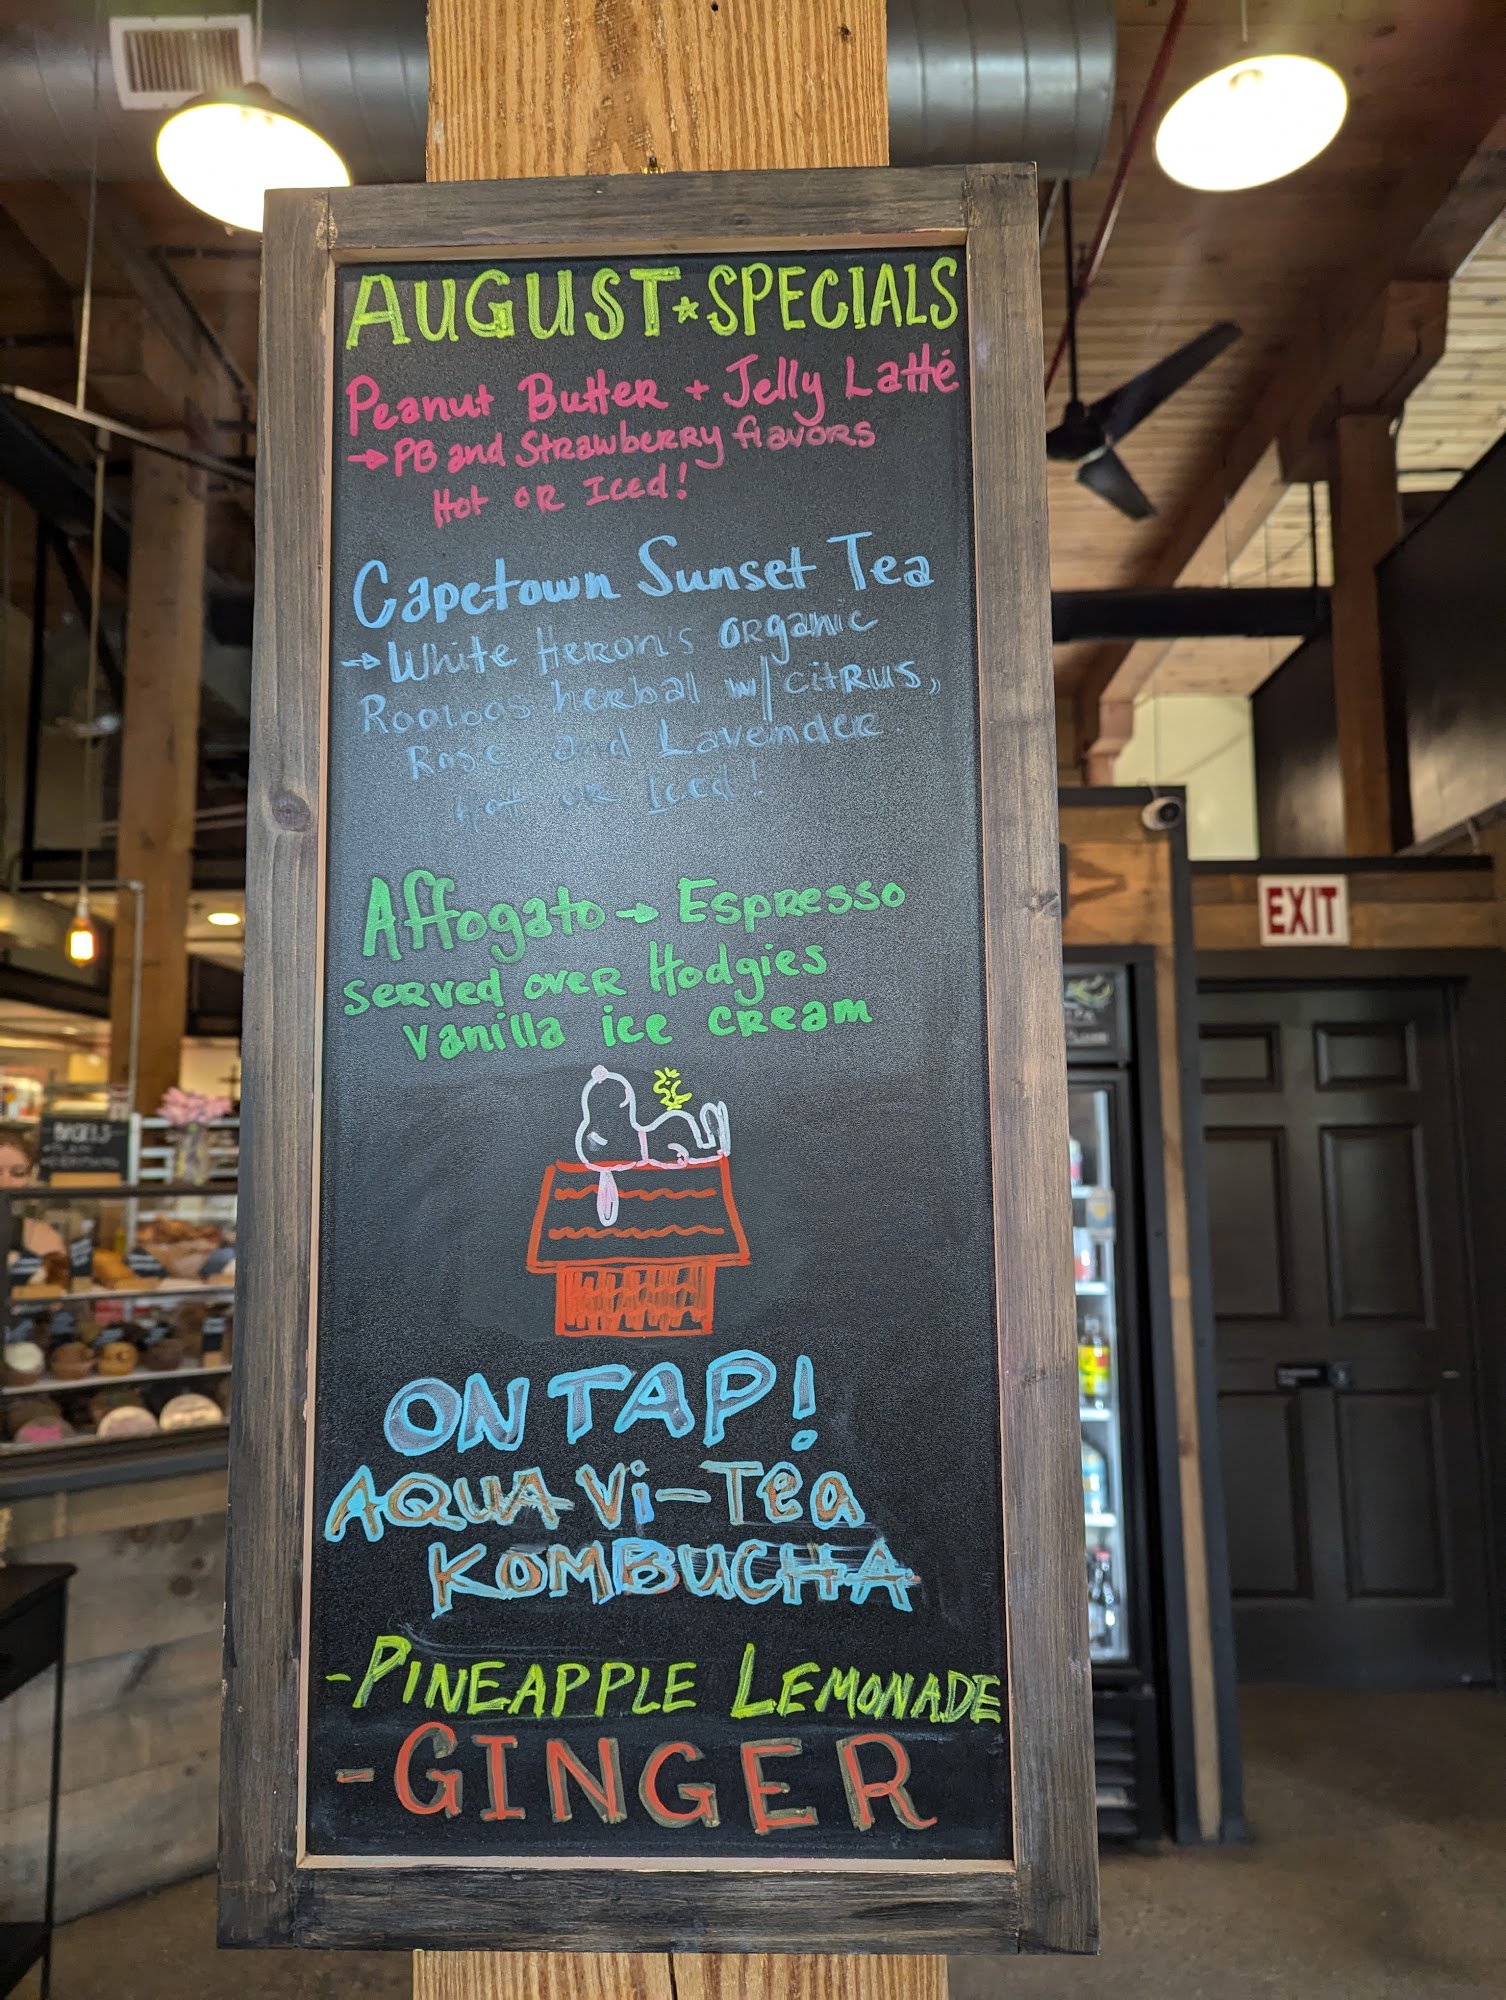 AUGUST SPECIALS
Peanut Butter + Jelly Latté
→ PB and Strawberry flavors
Hot or Iced!
Capetown Sunset Tea
→ White Heron's organic
Rooibos herbal w/ citrus,
Rose and Lavender.
Hot or Iced!
Affogato → Espresso
served over Hodgies
vanilla ice cream
ON TAP!
AQUA Vi-Tea
KOMBUCHA
-PINEAPPLE LEMONADE
-GINGER
EXIT
BAGELS